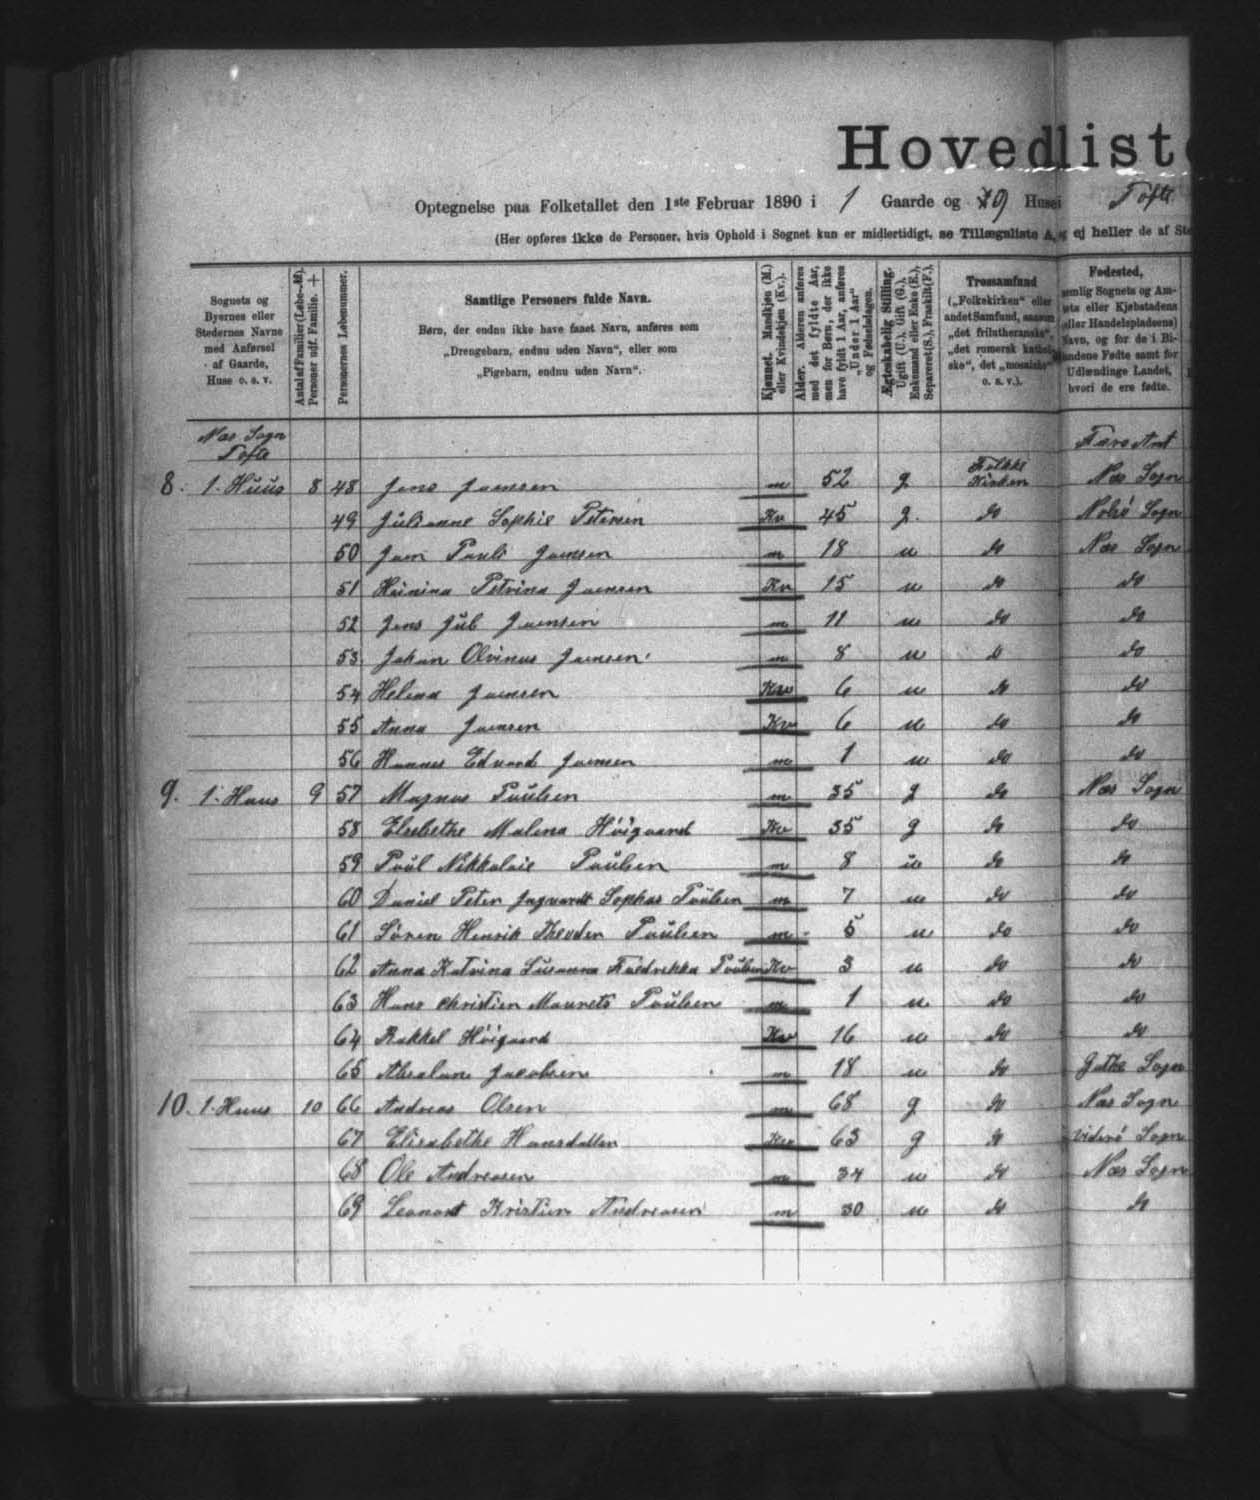 Hovedliste
Optegnelse paa Folketallet den 1ste Februar 1890 i 1 Gaarde og 9 Huse i Tofte
(Her opføres ikke de Personer, hvis Ophold i Sognet kun er midlertidigt, se Tillægsliste A, og ej heller de af
Sognets og Byernes eller Stedernes Navne med Anførsel af Gaarde, Huse o. s. v.
Antal af Familier (Løbe-№). Personer udf. Familie. +
Personernes Løbenummer.
Samtlige Personers fulde Navn.
Børn, der endnu ikke have faaet Navn, anføres som
„Drengebarn, endnu uden Navn“, eller som
„Pigebarn, endnu uden Navn“.
Kjønnet. Mandkjøn (M.) eller Kvindekjøn (Kv.).
Alder. Alderen anføres med det fyldte Aar, men for Børn, der ikke have fyldt 1 Aar, anføres „Under 1 Aar“ og Fødselsdagen.
Ægteskabelig Stilling. Ugift (U.), Gift (G.), Enkemand eller Enke (E.), Separeret (S.), Fraskilt (F.).
Trossamfund („Folkekirken“ eller andet Samfund, saasom „det frilutheranske“, „det romersk katholske“, det „mosaiske“ o. s. v.).
Fødested, nemlig Sognets og Amtets eller Kjøbstadens (eller Handelspladsens) Navn, og for de i Bilandene Fødte samt for Udlændinge Landet, hvori de ere fødte.
Næs Sogn
Tofte
Færø Amt
8. 1. Huus 8 48 Jens Joensen m 52 g Folke Kirken Næs Sogn
49 Julianne Sophie Petersen Kv 45 g. do Nolsø Sogn
50 Joen Pauli Joensen m 18 u do Næs Sogn
51 Petrina Joensen Kv 15 u do do
52 Jens Joensen m 11 u do do
53 Johan Olvinus Joensen m 8 u do do
54 Helena Joensen Kv 6 u do do
55 Anna Joensen Kv 6 u do do
56 Hannes Edvard Joensen m 1 u do do
9. 1. Huus 9 57 Magnus Poulsen m 35 g do Næs Sogn
58 Elsebethe Malena Høigaard Kv 35 g do do
59 Poul Nikkolaie Poulsen m 8 u do do
60 Daniel Peter Sophus Poulsen m 7 u do do
61 Sören Henrik Theodor Poulsen m 5 u do do
62 Anna Katrina Susanna Poulsen Kv 3 u do do
63 Hans Christian Maurets Poulsen m 1 u do do
64 Rakkel Høigaard Kv 16 u do do
65 Absalon Jacobsen m 18 u do Gøthe Sogn
10. 1. Huus 10 66 Andreas Olsen m 68 g do Næs Sogn
67 Elisabethe Hansdatter Kv 63 g do Viderø Sogn
68 Ole Andreasen m 34 u do Næs Sogn
69 Leonart Kristian Andreasen m 30 u do do